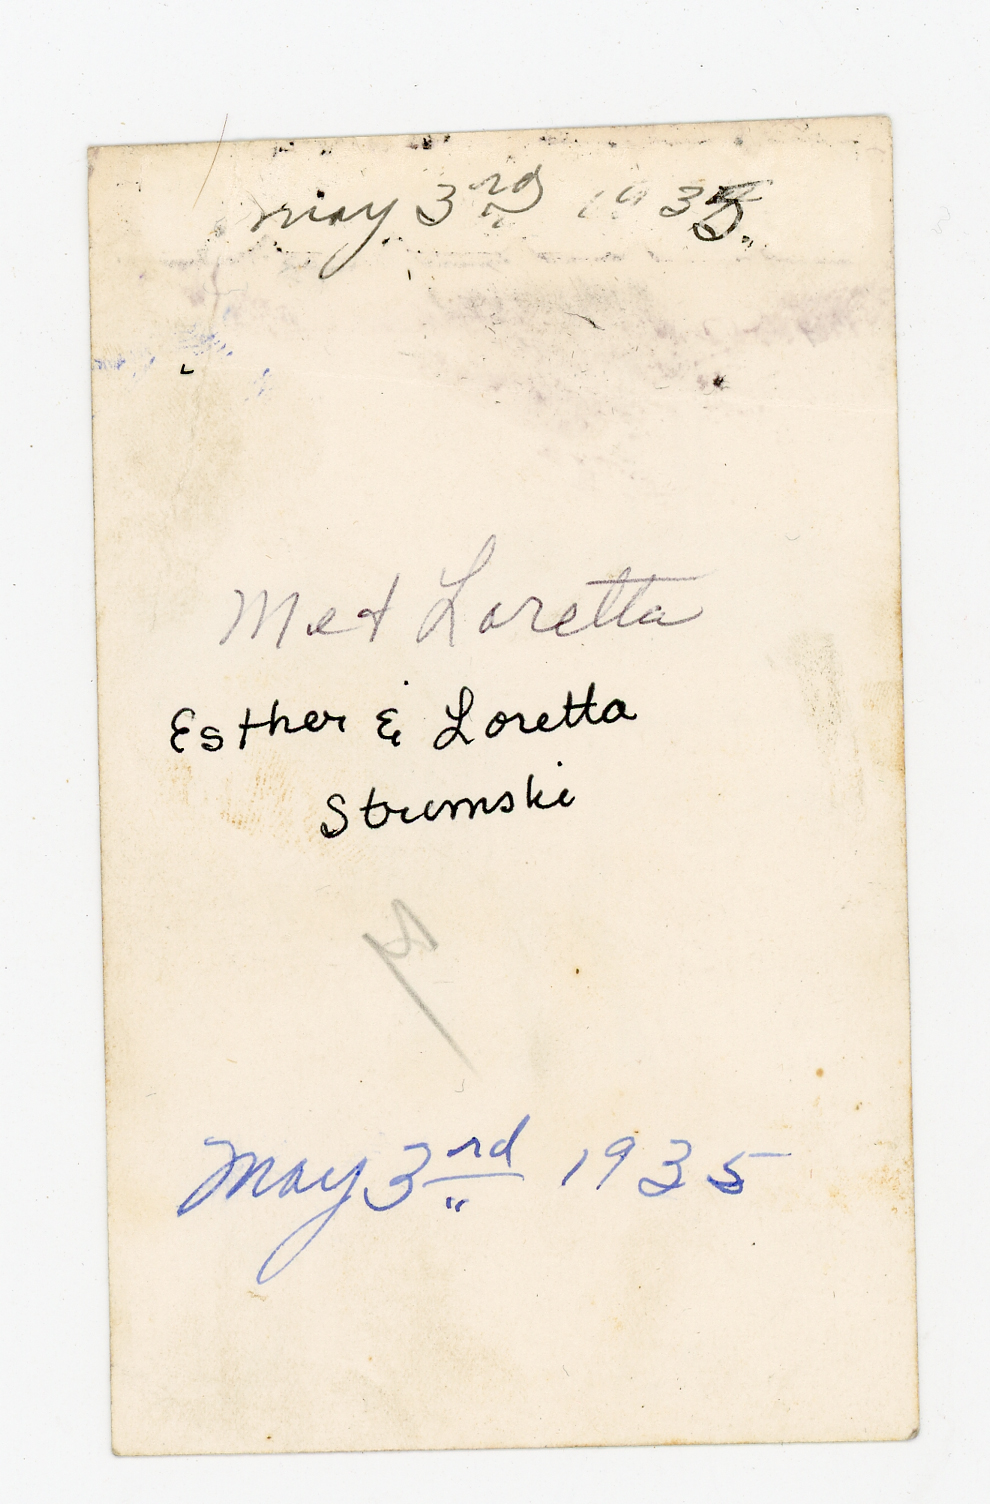 May 3rd 1935.
Me + Loretta
Esther & Loretta
Strumski
May 3rd 1935